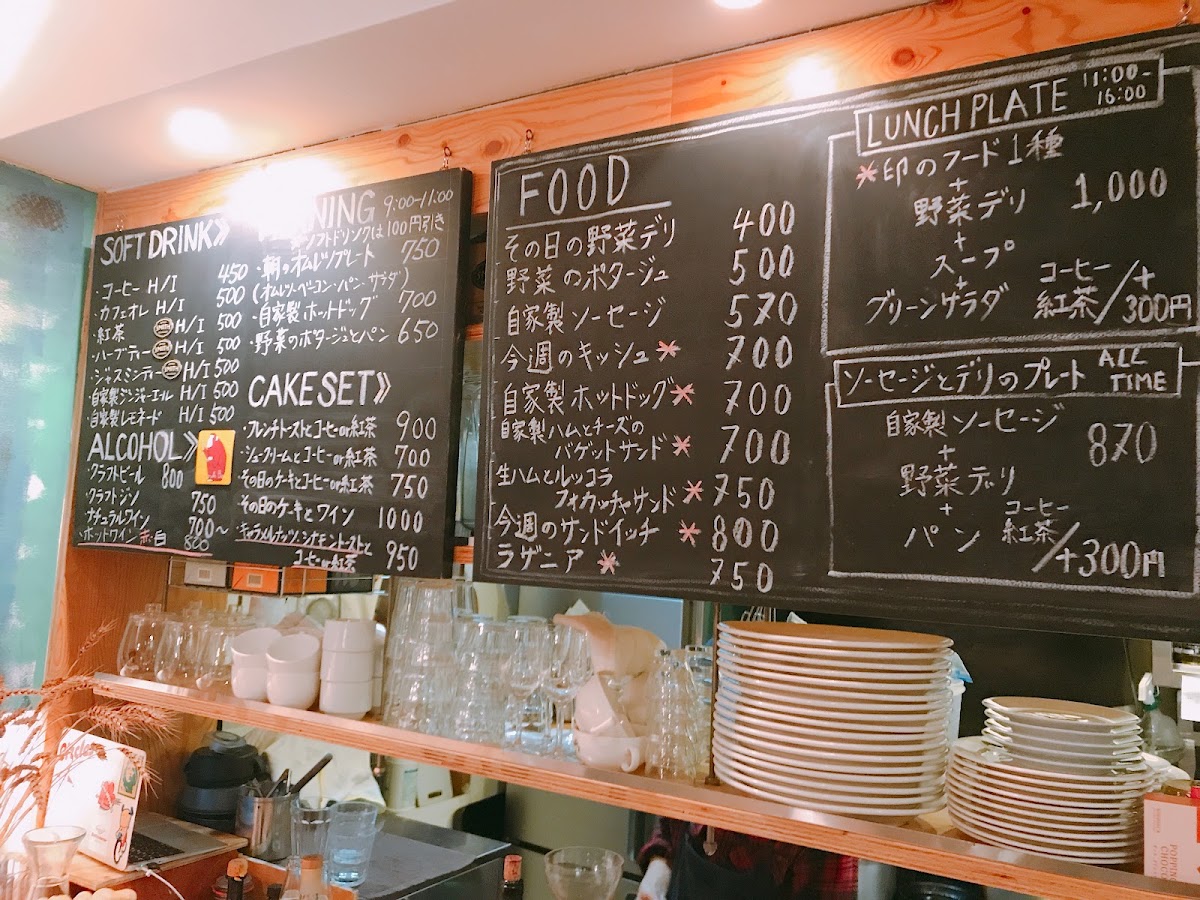 SOFT DRINK》
・コーヒー H/I 450
・カフェオレ H/I 500
・紅茶 H/I 500
・ハーブティー H/I 500
・ジャスミンティー H/I 500
・自家製ジンジャーエール H/I 500
・自家製レモネード H/I 500
ALCOHOL》
・クラフトビール 800
・クラフトジン 750
・ナチュラルワイン 700〜
・ホットワイン 赤・白 800
NING 9:00-11:00
ソフトドリンクは100円引き
・朝のオムレツプレート 750
(オムレツ・ベーコン・パン・サラダ)
・自家製ホットドッグ 700
・野菜のポタージュとパン 650
CAKE SET》
・フレンチトーストとコーヒーor紅茶 900
・シュークリームとコーヒーor紅茶 700
・その日のケーキとコーヒーor紅茶 750
・その日のケーキとワイン 1000
・キャラメルナッツ、シナモントーストと
コーヒーor紅茶 950
FOOD
その日の野菜デリ 400
野菜のポタージュ 500
自家製ソーセージ 570
今週のキッシュ * 700
自家製ホットドッグ * 700
自家製ハムとチーズの
バゲットサンド * 700
生ハムとルッコラ
フォカッチャサンド * 750
今週のサンドイッチ * 800
ラザニア * 750
LUNCH PLATE 11:00-16:00
*印のフード1種
+
野菜デリ 1,000
+
スープ
+
グリーンサラダ コーヒー紅茶/+300円
ソーセージとデリのプレート ALL TIME
自家製ソーセージ
+ 870
野菜デリ
+
パン コーヒー紅茶/+300円